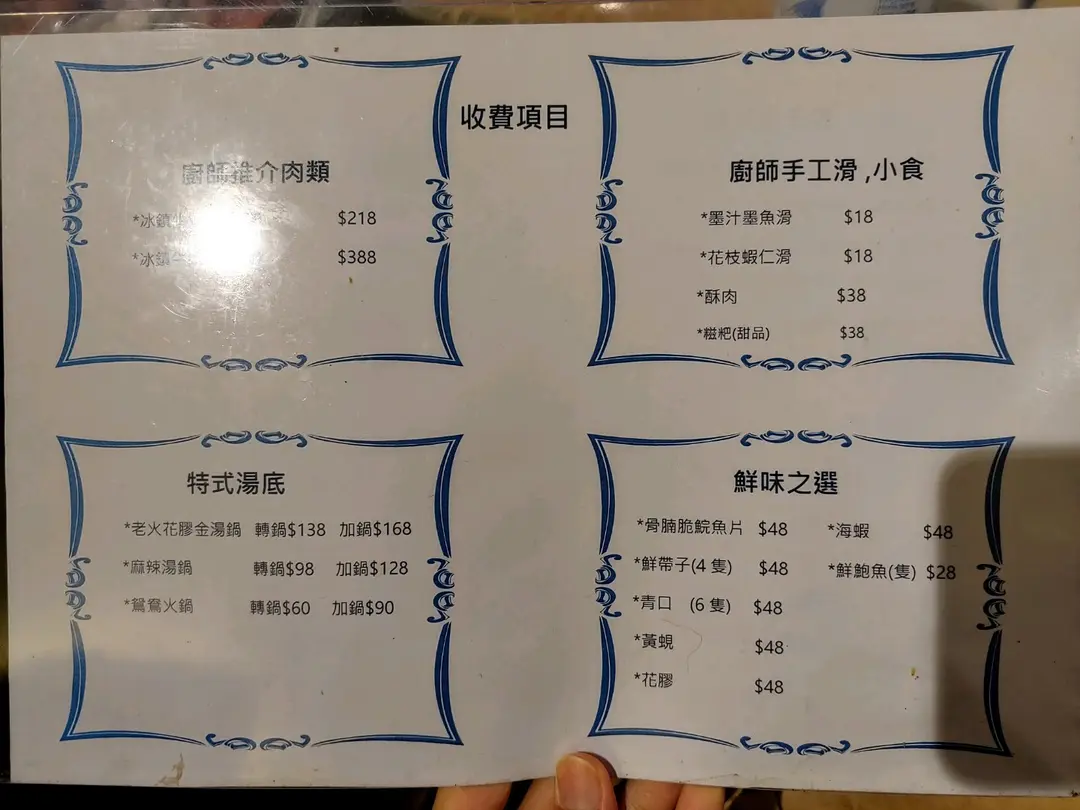 收費項目
廚師推介肉類
*冰鎮 $218
*冰鎮 $388
廚師手工滑 ,小食
*墨汁墨魚滑 $18
*花枝蝦仁滑 $18
*酥肉 $38
*糍粑(甜品) $38
特式湯底
*老火花膠金湯鍋 轉鍋$138 加鍋$168
*麻辣湯鍋 轉鍋$98 加鍋$128
*鴛鴦火鍋 轉鍋$60 加鍋$90
鮮味之選
*骨腩脆鯇魚片 $48 *海蝦 $48
*鮮帶子(4 隻) $48 *鮮鮑魚(隻) $28
*青口 (6 隻) $48
*黃蜆 $48
*花膠 $48